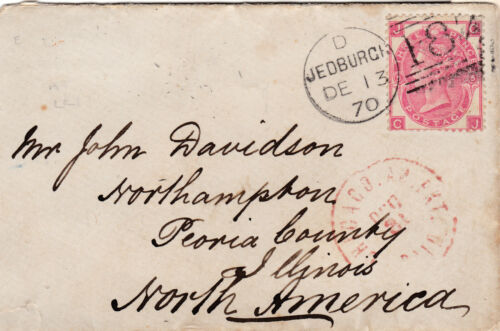 D
JEDBURGH
DE 13
70
18
J C
POSTAGE
C J
Mr John Davidson
Northampton
Peoria County
Illinois
North America
CHICAGO